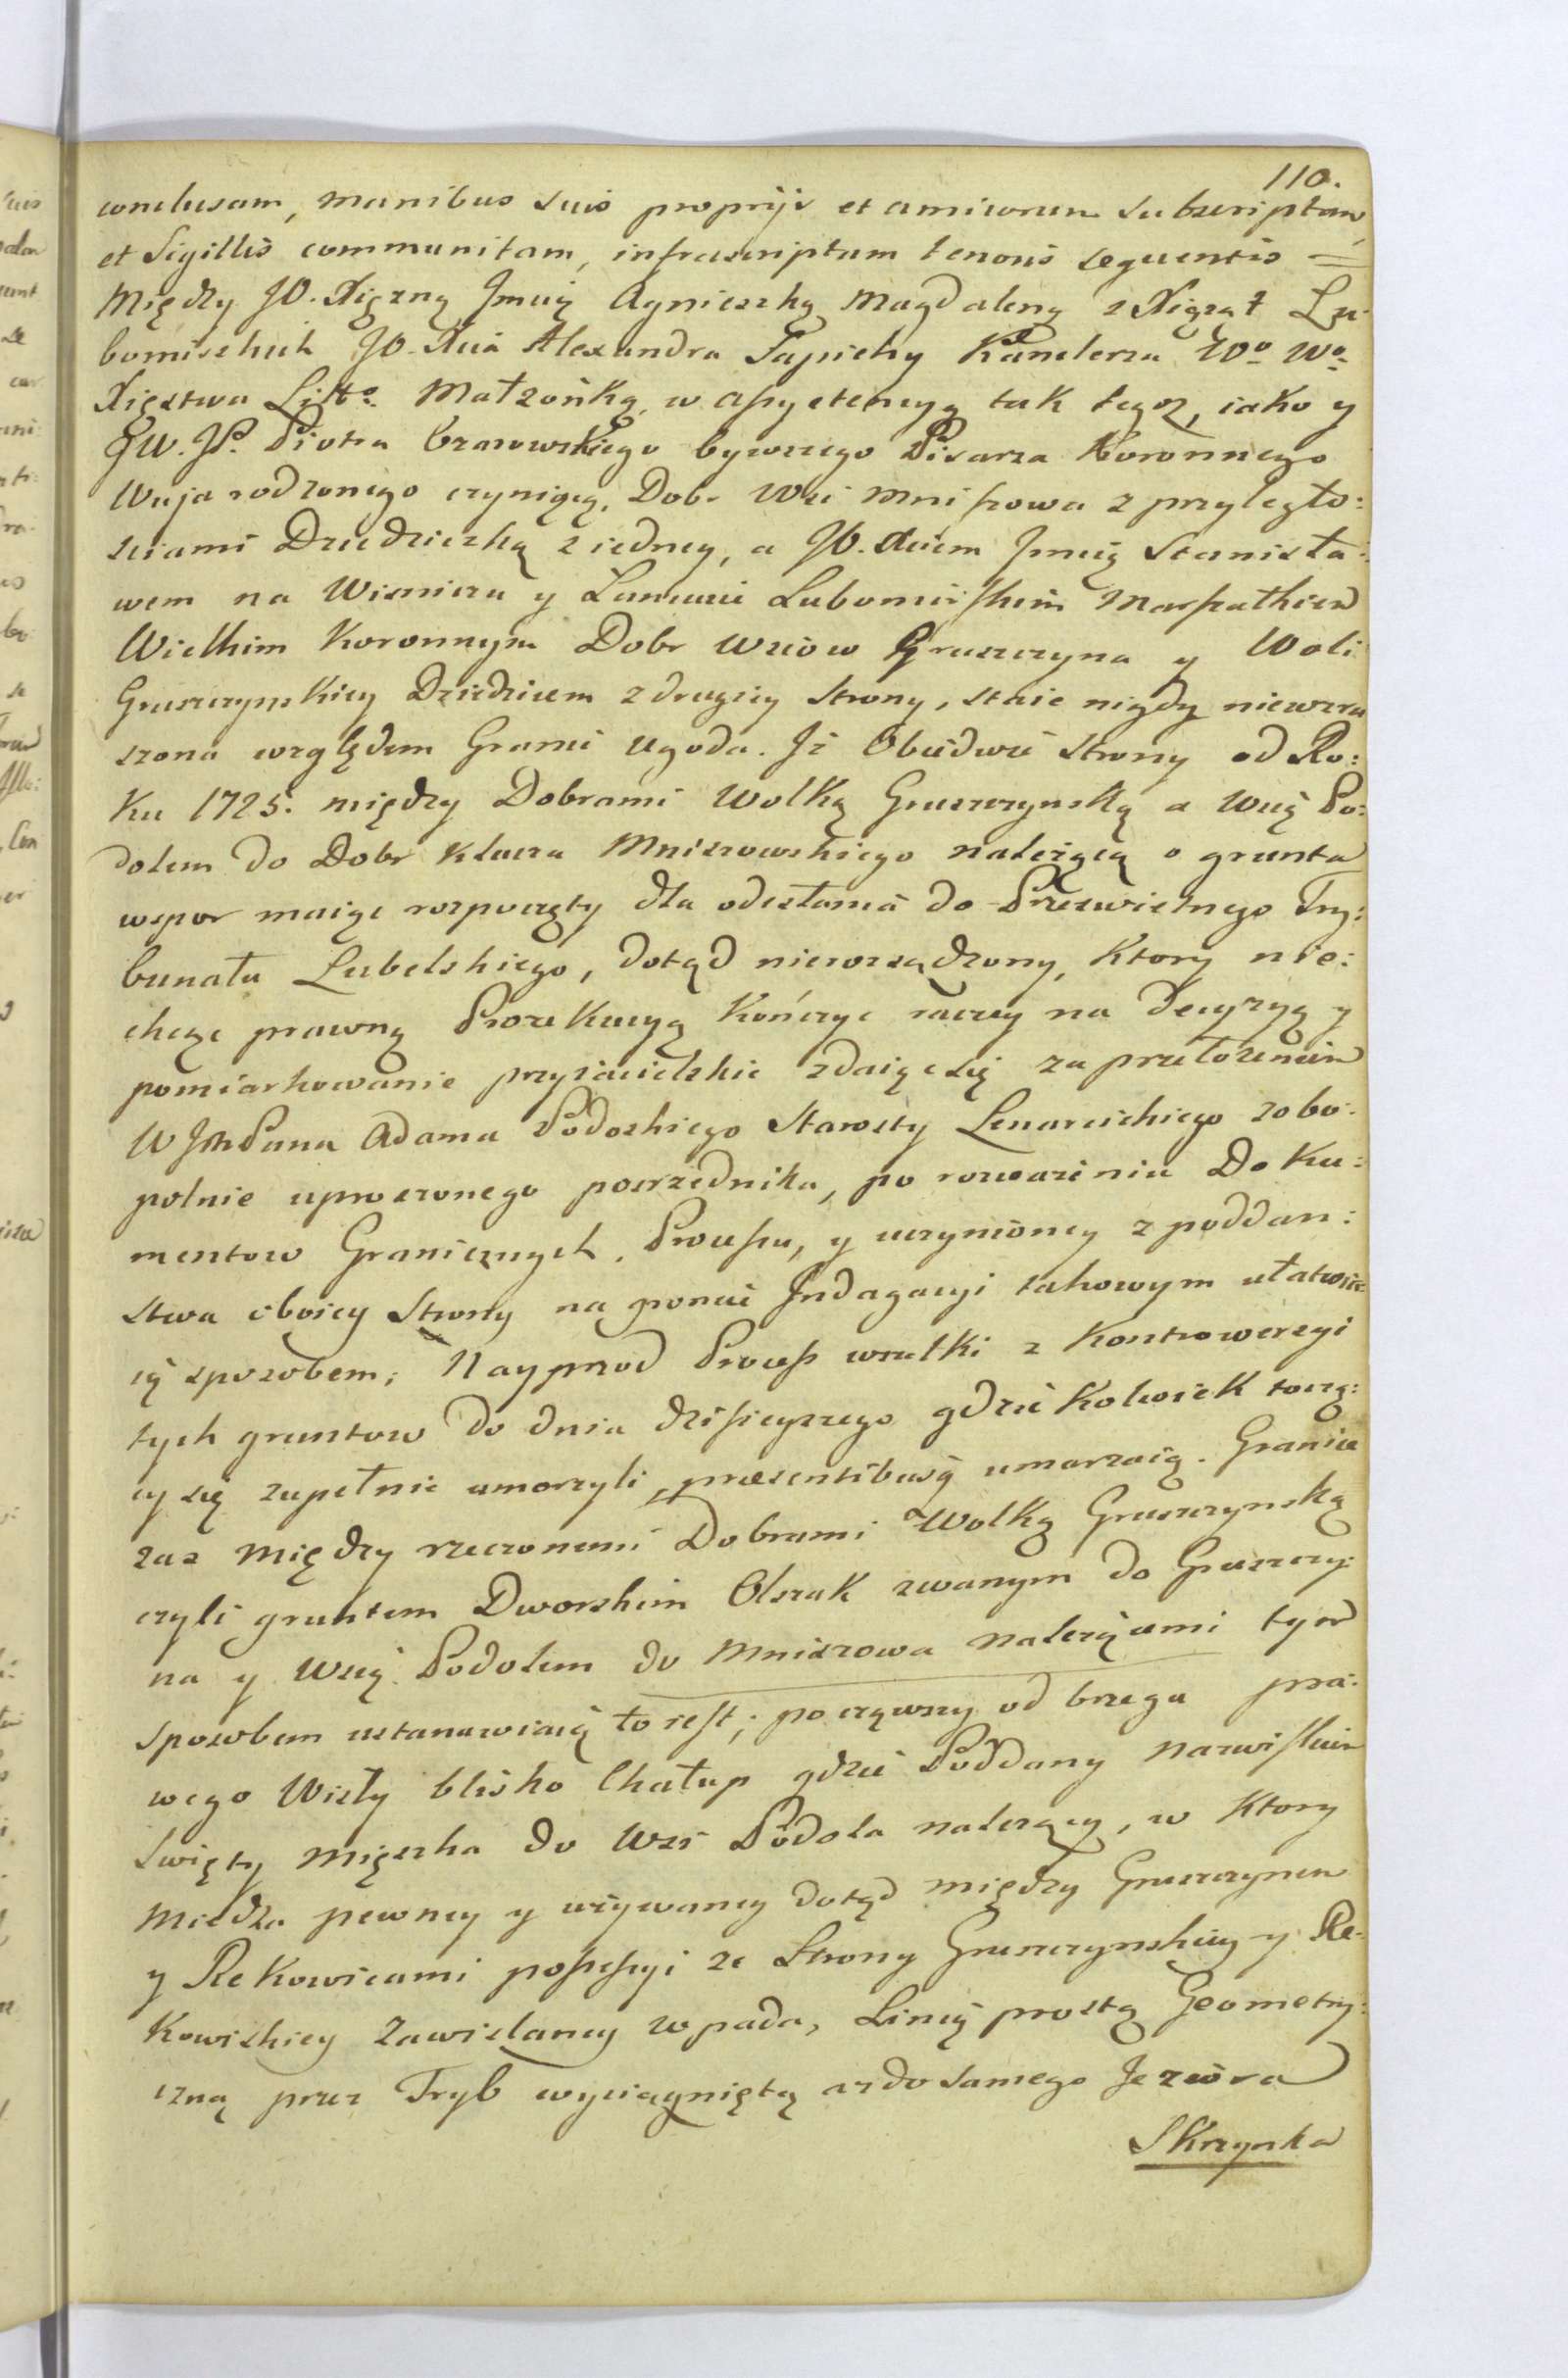 110.
conclusam, manibus suis proprijs et amicorum subscriptam,
et Sigillis communitam, infrascriptum tenoris sequentis =
Między JO. Xiężną Jmcią Agnieszką Magdaleną z Xiążąt Lu-
bomirskich JO. Xcia Alexandra Sapiehy Kanclerza Wo Wo
Xięstwa Litto. Małżonką, w assystencyą tak tegoż, iako y
JW. JP. Piotra Ożarowskiego bywszego Pisarza Koronnego
Wuja rodzonego czyniącą, Dobr Wsi Mniszowa z przyległo:
sciami Dziedziczką z iedney, a JO. Xciem Jmcią Stanisła:
wem na Wisniczu y Łancucie Lubomirskim Marszałkiem
Wielkim Koronnym Dobr Wsiow Gruszczyna y Woli
Gruszczynskiey Dziedzicem z drugiey strony, staie nigdy niewzru
szona względem Granic ugoda. Iż Obiedwie strony od Ro:
Ku 1725. między Dobrami Wolką Gruszczynską a Wsią Po:
dolem do Dobr Klucza Mniszowskiego należącą o grunta
wspor maiąc rozpoczęty dla odesłania do Przeswietnego Try:
bunału Lubelskiego, dotąd nierozsądzony, Ktory nie:
chcąc prawną Prozekucyą Kończyc raczey na Decyzyą y
pomiarkowanie przyiacielskie zdaiąc się za przełożeniem
W JmPana Adama Podoskiego Starosty Lenarcickiego zobo-
polnie uproszonego posrzednika, po rozważeniu Doku:
mentow Granicznych, Processu, y uczynioney z poddan:
stwa oboiey Strony na gruncie Indagacyi takowym ułatwia
ią sposobem; Nayprzod Process wszelki z Kontrowersyi
tych gruntow do dnia dzisieyszego gdzie Kolwiek toczą:
cy się zupełnie umorzyli, præsentibusq umarzaią. Granice
zas między rzeczonemi Dobrami Wolką Gruszczynską
czyli gruntem Dworskim Olszak zwanym do Gruszczy:
na y Wsią Podolem do Mniszowa należącemi tym
sposobem ustanawiaią to iest; począwszy od brzega pra:
wego Wisły blisko Chałup gdzie Poddany nazwiskiem
Swięty mięszka do Wsi Podola należący, w Ktory
miedza pewney y używaney dotąd między Gruszczynem
y Rekowicami possessyi ze Strony Gruszczynskiey y Re-
Kowiskiey Zawislaney wpada, Linią prostą Geometry:
czną przez Tryb wyciągniętą aż do samego Jeziora
Skrzynka